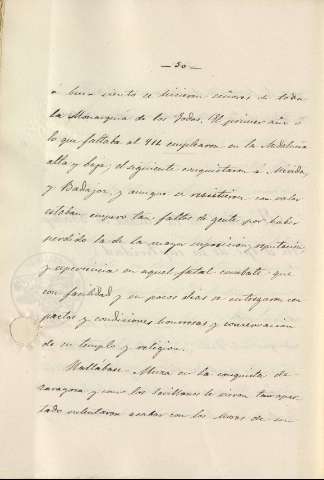 — 30 —
á buen viento se hicieron señores de toda
la Monarquia de los Godos. El primer año ó
lo que faltaba al 712 emplearon en la Andalucia
alta y baja; el siguiente conquistaron á Merida,
y Badajoz, y aunque se resistieron con valor
estaban empero tan faltos de gente por haber
perdido la de la mayor suposicion, reputacion
y esperiencia en aquel fatal combate que
con facilidad y en pocos dias se entregaron con
pactos y condiciones honrosas y conservacion
de su templo y religion.
Hallábase Muza en la conquista de
zaragoza y como los sevillanos le vieron tan apar-
tado intentaron acabar con los moros de su